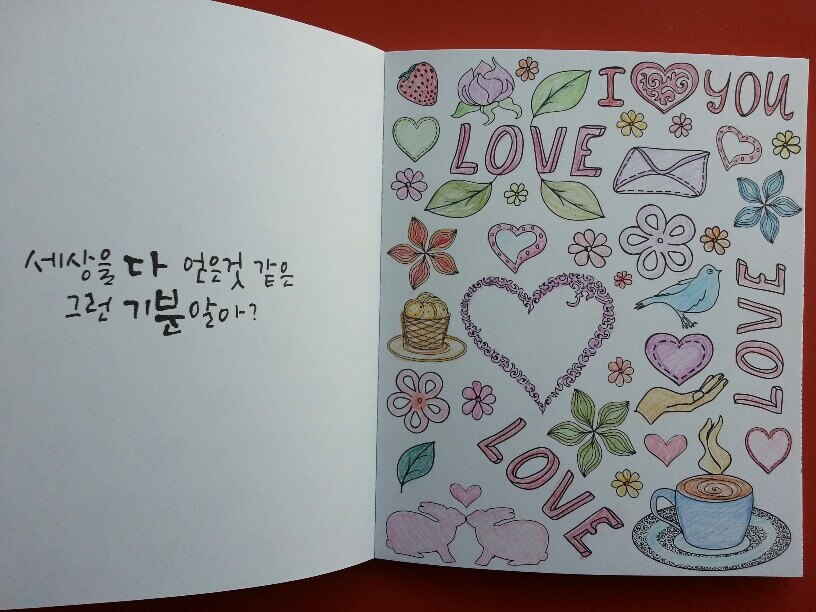 세상을 다 얻은것 같은
그런 기분 알아?
I YOU
LOVE
LOVE
LOVE